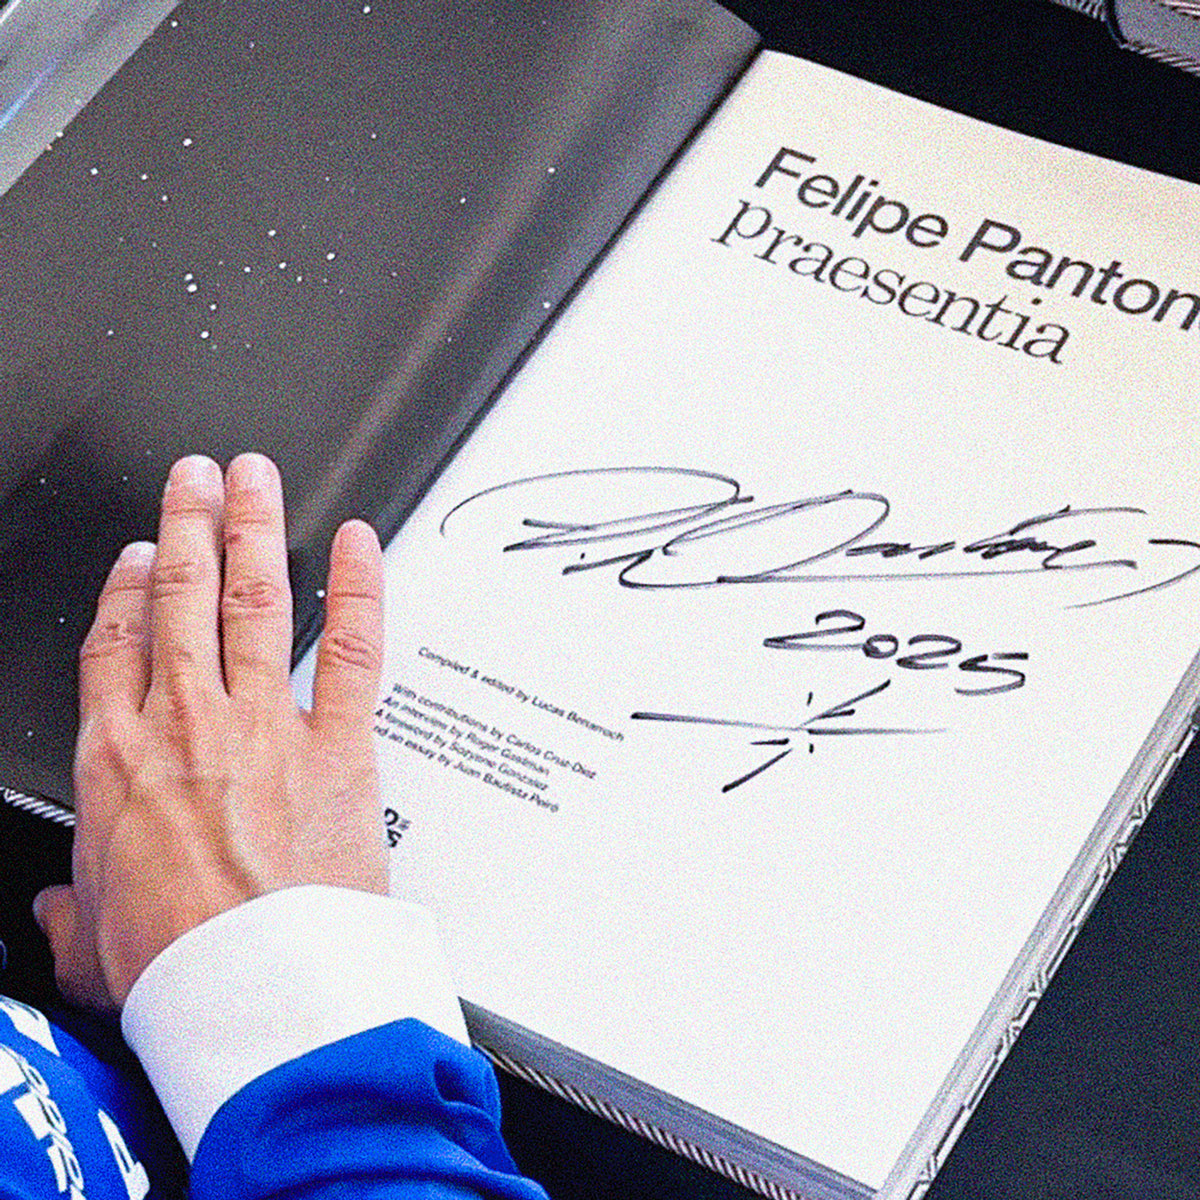 Felipe Panton
praesentia
2025
Compiled & edited by Lucas Benarroch
With contributions by Carlos Cruz-Diez
An interview by Roger Gastman
A foreword by Sozyone Gonzalez
nd an essay by Juan Bautista Peiró